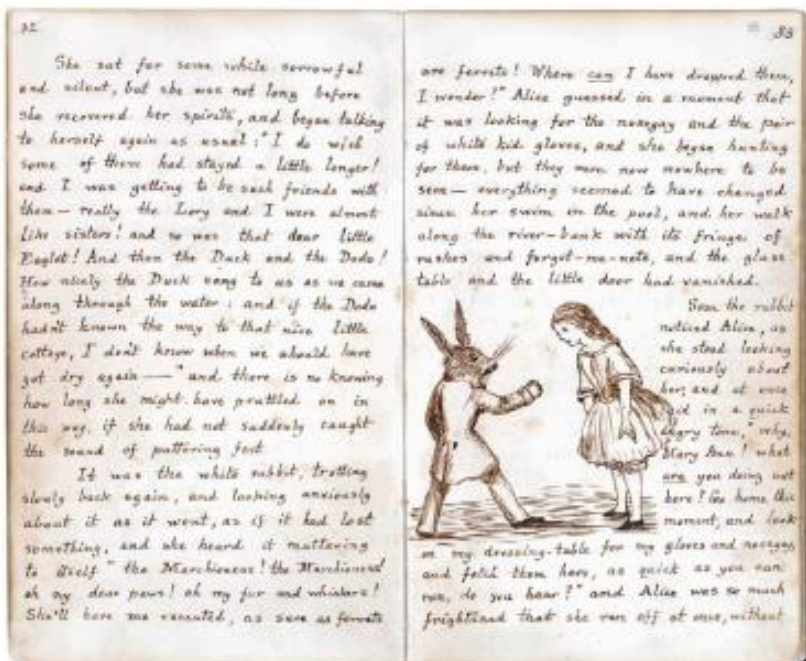 32
She sat for some while sorrowful
and silent, but she was not long before
she recovered her spirits, and began talking
to herself again as usual: "I do wish
some of them had stayed a little longer!
and I was getting to be such friends with
them — really the Lory and I were almost
like sisters! and so was that dear little
Eaglet! And then the Duck and the Dodo!
How nicely the Duck sang to us as we came
along through the water: and if the Dodo
hadn't known the way to that nice little
cottage, I don't know when we should have
got dry again —" and there is no knowing
how long she might have prattled on in
this way, if she had not suddenly caught
the sound of pattering feet.
It was the white rabbit, trotting
slowly back again, and looking anxiously
about it as it went, as if it had lost
something, and she heard it muttering
to itself "the Marchioness! the Marchioness!
oh my dear paws! oh my fur and whiskers!
She'll have me executed, as sure as ferrets
33
are ferrets! Where can I have dropped them,
I wonder?" Alice guessed in a moment that
it was looking for the nosegay and the pair
of white kid gloves, and she began hunting
for them, but they were now nowhere to be
seen — everything seemed to have changed
since her swim in the pool, and her walk
along the river-bank with its fringe of
rushes and forget-me-nots, and the glass
table and the little door had vanished.
Soon the rabbit
noticed Alice, as
she stood looking
curiously about
her, and at once
said in a quick
angry tone, "why,
Mary Ann! what
are you doing out
here? Go home this
moment, and look
on my dressing-table for my gloves and nosegay,
and fetch them here, as quick as you can
run, do you hear?" and Alice was so much
frightened that she ran off at once, without